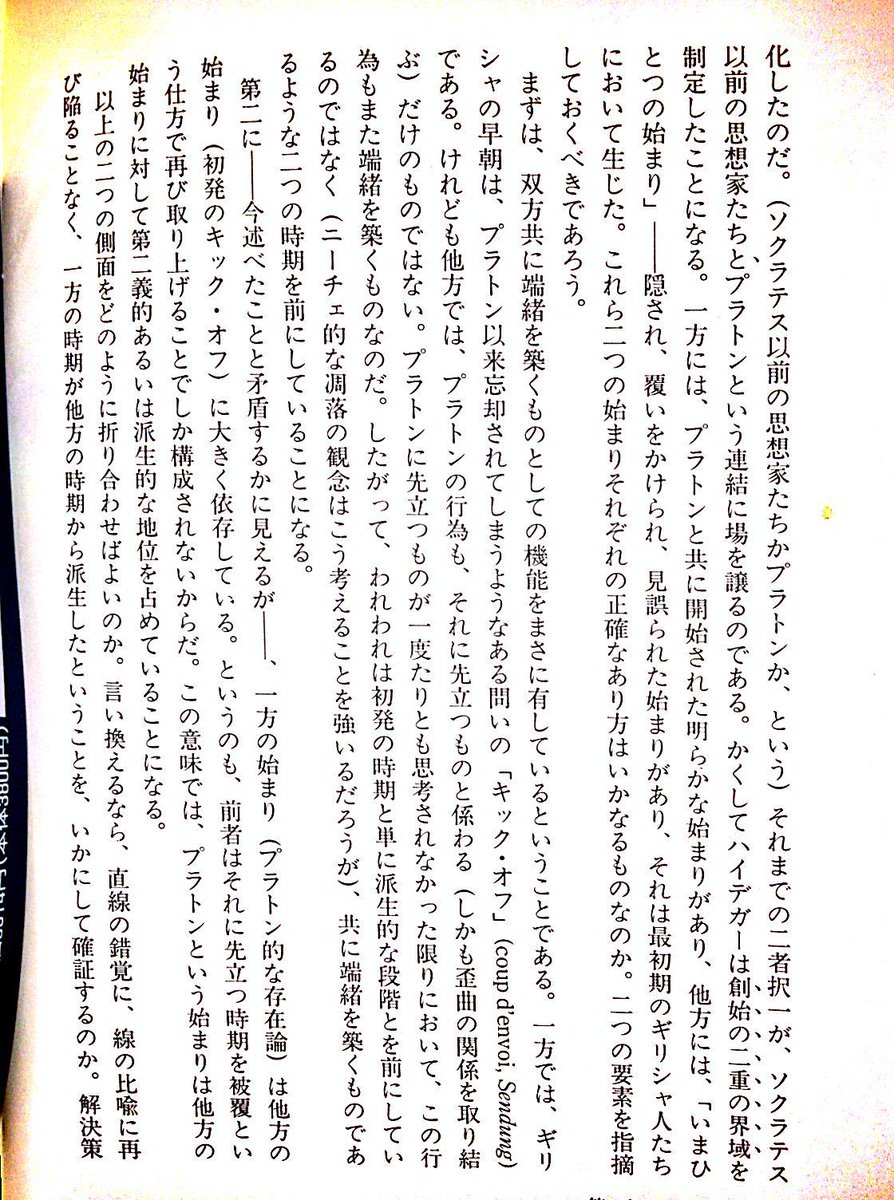 化したのだ。(ソクラテス以前の思想家たちかプラトンか、という)それまでの二者択一が、ソクラテス
以前の思想家たちとプラトンという連結に場を譲るのである。かくしてハイデガーは創始の二重の界域を
制定したことになる。一方には、プラトンと共に開始された明らかな始まりがあり、他方には、「いまひ
とつの始まり」――隠され、覆いをかけられ、見誤られた始まりがあり、それは最初期のギリシャ人たち
において生じた。これら二つの始まりそれぞれの正確なあり方はいかなるものなのか。二つの要素を指摘
しておくべきであろう。
まずは、双方共に端緒を築くものとしての機能をまさに有しているということである。一方では、ギリ
シャの早朝は、プラトン以来忘却されてしまうようなある問いの「キック・オフ」(coup d'envoi, Sendung)
である。けれども他方では、プラトンの行為も、それに先立つものと係わる(しかも歪曲の関係を取り結
ぶ)だけのものではない。プラトンに先立つものが一度たりとも思考されなかった限りにおいて、この行
為もまた端緒を築くものなのだ。したがって、われわれは初発の時期と単に派生的な段階とを前にしてい
るのではなく(ニーチェ的な凋落の観念はこう考えることを強いるだろうが)、共に端緒を築くものであ
るような二つの時期を前にしていることになる。
第二に――今述べたことと矛盾するかに見えるが――、一方の始まり(プラトン的な存在論)は他方の
始まり(初発のキック・オフ)に大きく依存している。というのも、前者はそれに先立つ時期を被覆とい
う仕方で再び取り上げることでしか構成されないからだ。この意味では、プラトンという始まりは他方の
始まりに対して第二義的あるいは派生的な地位を占めていることになる。
以上の二つの側面をどのように折り合わせばよいのか。言い換えるなら、直線の錯覚に、線の比喩に再
び陥ることなく、一方の時期が他方の時期から派生したということを、いかにして確証するのか。解決策